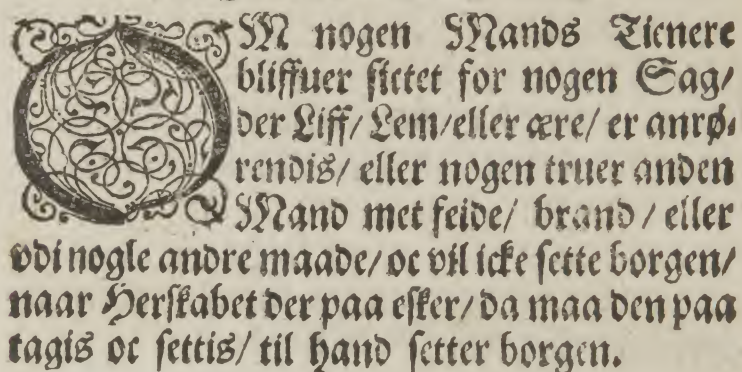 OM nogen Mands Tienere
bliffuer sictet for nogen Sag/
der Liff/ Lem/ eller ære/ er anrø-
rendis/ eller nogen truer anden
Mand met feide/ brand/ eller
vdi nogle andre maade/ oc vil icke sette borgen/
naar Herskabet der paa esker/ da maa den paa
tagis oc settis/ til hand setter borgen.